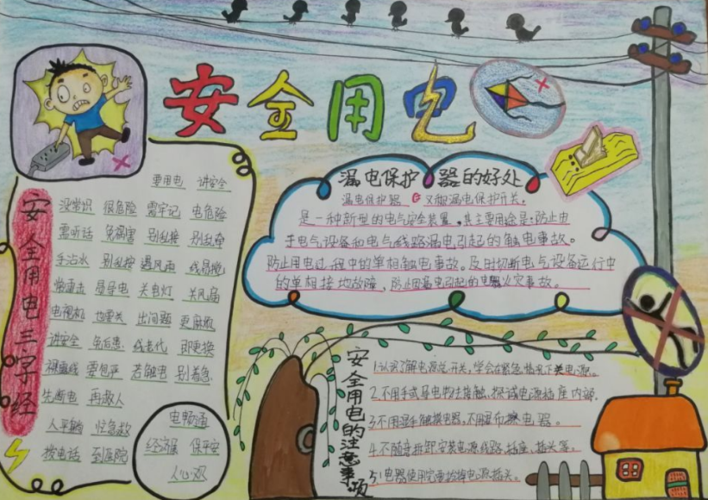 安全用电
安全用电三字经
要用电 讲安全
没常识 很危险 需牢记 电危险
需听话 免祸害 别乱接 别乱牵
手沾水 别乱抄 遇风雨
关电灯 关风扇
电视机 也要关 出问题
讲安全 免后患 线老化 即更换
若触电 别着急
先断电 再救人
人平躺 快急救
拨电话 到医院
电畅通
经济强 保平安
人心欢
漏电保护器的好处
漏电保护器 又称漏电保护开关,
是一种新型的电气安全装置。其主要用途是:防止由
于电气设备和电气线路漏电引起的触电事故。
防止用电过程中的单相触电事故。及时切断电气设备运行中
的单相接地故障,防止因漏电引起的电气火灾事故。
安全用电的注意事项
1.认识了解电源总开关,学会在紧急情况下关电源。
2.不用手或导电物去接触、探试电源插座内部。
3.不用湿手触摸电器,不用湿布擦电器。
4.不随意拆卸安装电源线路、插座、插头等。
5.电器使用完要拔掉电源插头。